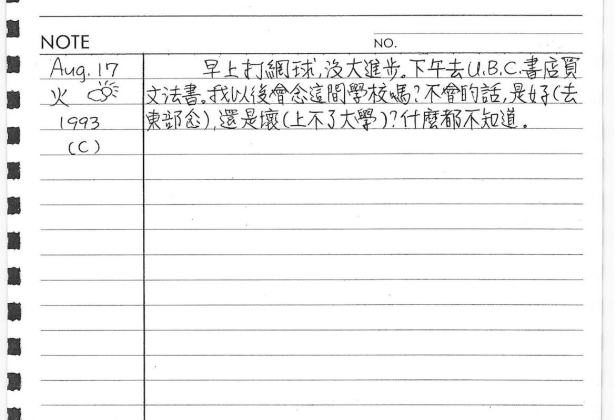 NOTE
NO.
Aug. 17
火
1993
(C)
早上打網球,沒大進步。下午去U.B.C.書店買
文法書。我以後會念這間學校嗎?不會的話,是好(去
東部念),還是壞(上不了大學)?什麼都不知道。